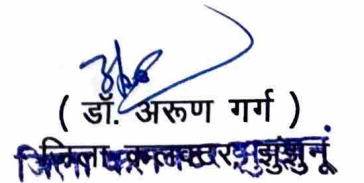 ( डॉ. अरूण गर्ग )
जिला कलक्टर, झुंझुनूं